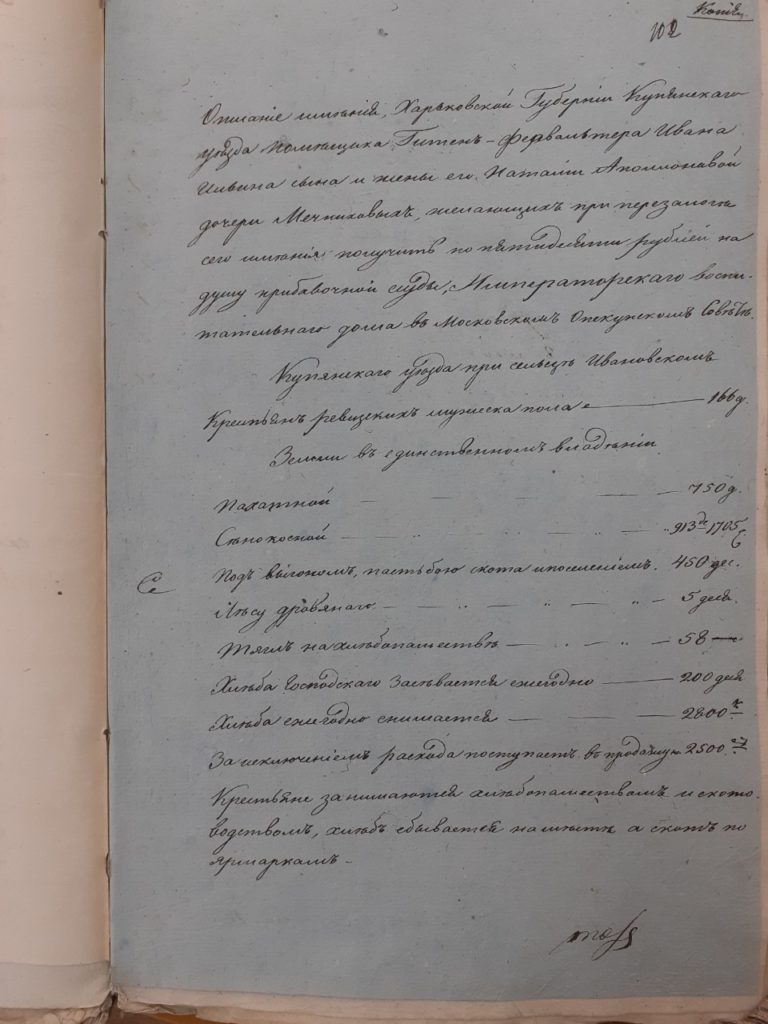 Копія.
102
Описаніе имѣнія, Харьковской Губерніи Купянскаго
уѣзда Помѣщика Гитенъ-фервальтера Ивана
Ильина сына и жены его Наталіи Аполлоновой
дочери Мечниковыхъ, желающихъ при перезалогѣ
сего имѣнія получить по пятидесяти рублей на
душу прибавочной ссуды, Императорскаго воспи-
тательнаго дома въ Московскомъ Опекунскомъ Совѣтѣ.
Купянскаго уѣзда при сельцѣ Ивановскомъ
Крестьянъ ревизскихъ мужеска пола — 166 д.
Земли въ единственномъ владѣніи
Пахатной — 750 д.
Сѣнокосной — 913 де 1705 с
Подъ выгономъ, пастьбою скота и поселеніемъ. 450 дес.
Лѣсу дровянаго — 5 деся.
Тяглъ на хлѣбопашествѣ — 58 —
Хлѣба Господскаго Засѣвается ежегодно — 200 деся
Хлѣба ежегодно снимается — 2800 ч.
За исключеніемъ расхода поступаетъ въ продажу 2500. чет
Крестьяне занимаются хлѣбопашествомъ и ското
водствомъ, хлѣбъ сбывается на мѣстѣ а скотъ по
ярмаркамъ —